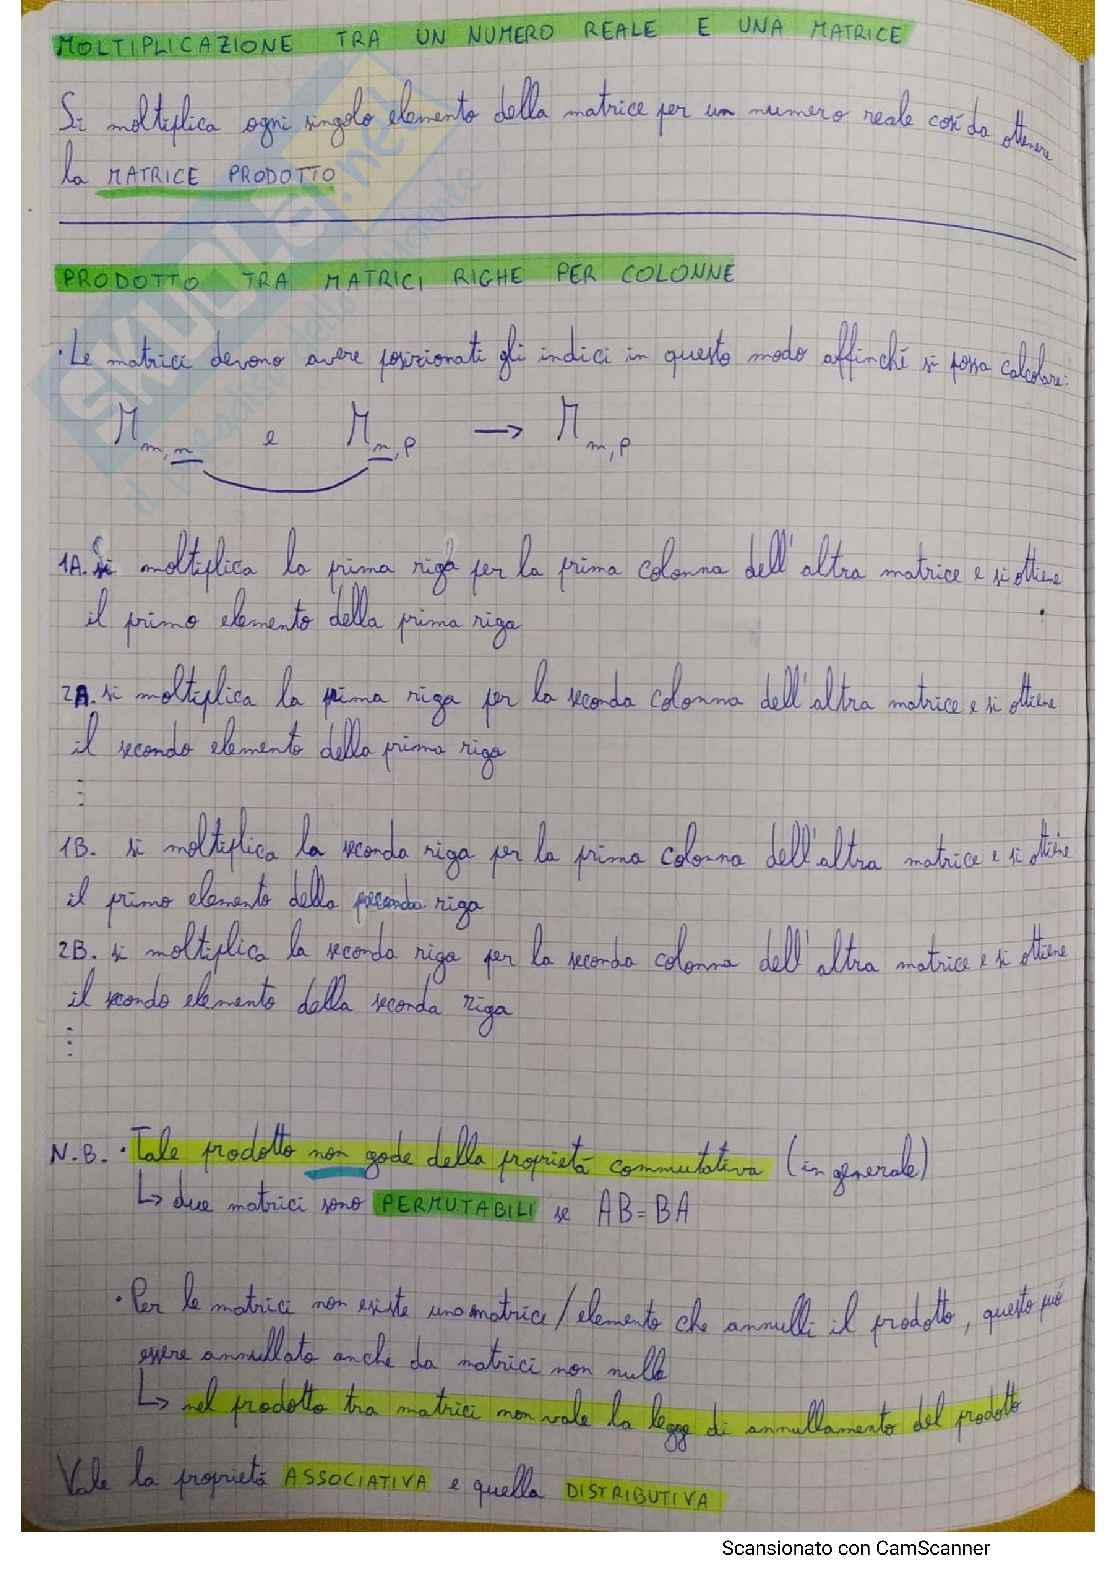 MOLTIPLICAZIONE TRA UN NUMERO REALE E UNA MATRICE
Si moltiplica ogni singolo elemento della matrice per un numero reale così da ottenere
la MATRICE PRODOTTO
PRODOTTO TRA MATRICI RIGHE PER COLONNE
· Le matrici devono avere posizionati gli indici in questo modo affinché si possa calcolare:
M m,n e M n,p → M m,p
1A. Si moltiplica la prima riga per la prima colonna dell'altra matrice e si ottiene
il primo elemento della prima riga
2A. si moltiplica la prima riga per la seconda colonna dell'altra matrice e si ottiene
il secondo elemento della prima riga
⋮
1B. si moltiplica la seconda riga per la prima colonna dell'altra matrice e si ottiene
il primo elemento della seconda riga
2B. si moltiplica la seconda riga per la seconda colonna dell'altra matrice e si ottiene
il secondo elemento della seconda riga
⋮
N.B. · Tale prodotto non gode della proprietà commutativa (in generale)
↳ due matrici sono PERMUTABILI se AB=BA
· Per le matrici non esiste una matrice/elemento che annulli il prodotto, questo può
essere annullato anche da matrici non nulle
↳ nel prodotto tra matrici non vale la legge di annullamento del prodotto
Vale la proprietà ASSOCIATIVA e quella DISTRIBUTIVA
SKUOLA.net
Scansionato con CamScanner